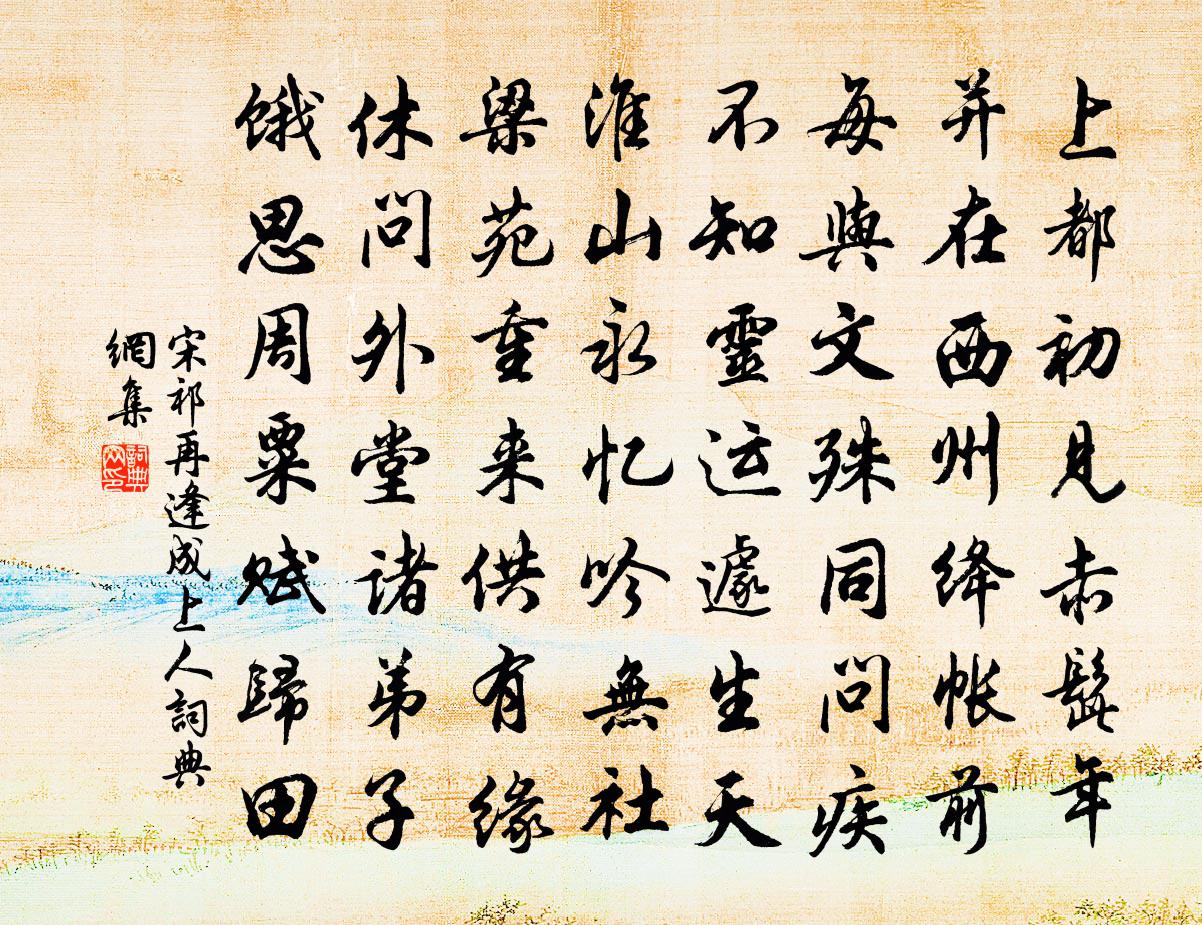 上都初見赤髭年
并在西州绛帐前
每與文殊同问疾
不知靈运遽生天
淮山永忆吟無社
梁苑重来供有缘
休问外堂诸弟子
饿思周粟赋歸田
宋祁再逢成上人詞典
網集
詞典
网印